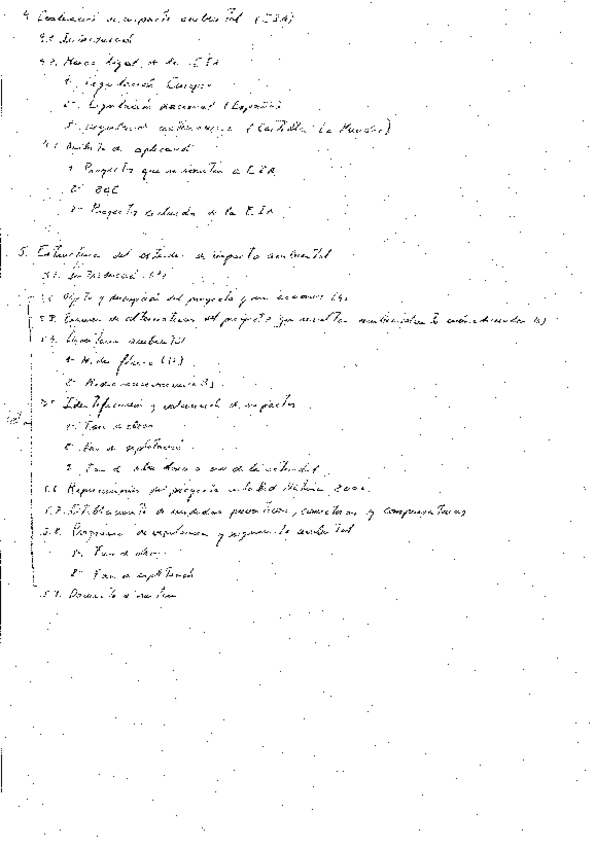 4. Evaluación de impacto ambiental (EIA)
4.1 Introducción
4.2. Marco legal de EIA
1- Legislación Europea
2- Legislación nacional (España)
3- Legislación autonómica (Castilla La Mancha)
4.3 Ámbito de aplicación
1 Proyectos que se someten a EIA
2-
3- Proyectos excluidos de la EIA
5. Estructura del estudio de impacto ambiental
5.1. Introducción
5.2 Objeto y descripción del proyecto y sus acciones
5.3. Examen de alternativas del proyecto que
5.4. Inventario ambiental
1- Medio físico
2- Medio socioeconómico
5.5 Identificación y valoración de impactos
1- Fase de obras
2- Fase de explotación
3- Fase de
5.6 Repercusiones del proyecto en la Red Natura 2000
5.7. Establecimiento de medidas preventivas, correctoras y compensatorias
5.8. Programa de vigilancia y seguimiento ambiental
1- Fase de obras
2- Fase de explotación
5.9. Documento de síntesis